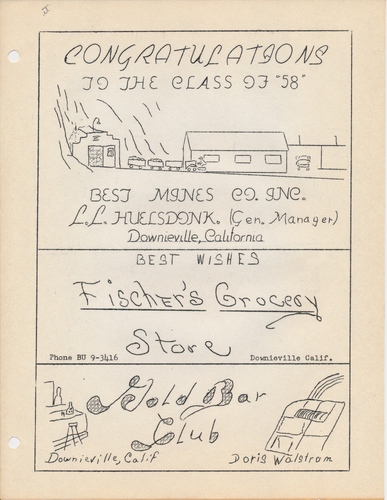 CONGRATULATIONS
TO THE CLASS OF "58"
BEST MINES CO. INC.
L.L. HUELSDONK. (Gen. Manager)
Downieville, California
BEST WISHES
Fischer's Grocery
Store
Phone BU 9-3416 Downieville Calif.
Gold Bar
Club
Downieville, Calif Doris Walstrom